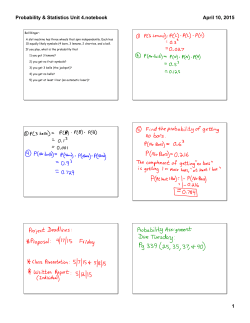 Probability & Statistics Unit 4.notebook
April 10, 2015
Bell Ringer:
A slot machine has three wheels that spin independently. Each has
10 equally likely symbols: 4 bars, 3 lemons, 2 cherries, and a bell.
If you play, what is the probability that
1) you get 3 lemons?
2) you get no fruit symbols?
3) you get 3 bells (the jackpot)?
4) you get no bells?
5) you get at least 1 bar (an automatic lose)?
① P(3 lemons) = P(L) · P(L) · P(L)
= 0.3³
= 0.027
② P(no fruit) = P(NF) · P(NF) · P(NF)
= 0.5³
= 0.125
③ P(3 bells) = P(B) · P(B) · P(B)
= 0.1³
= 0.001
④ P(no bells) = P(NB) · P(NB) · P(NB)
= 0.9³
= 0.729
⑤ Find the probability of getting
no bars.
P(No Bars) = 0.6³
P(No Bars) = 0.216
The complement of getting "no bars"
is getting 1 or more bars, "at least 1 bar"
P(At least 1 Bar) = 1 - P(No Bar)
= 1 - 0.216
= 0.784
Project Deadlines:
* Proposal 4/17/15 Friday
* Class Presentation 5/7/15 & 5/8/15
* Written Report 5/12/15
(Individual)
Probability Assignment
Due Tuesday
Pg 339 (33, 35, 37, & 40)
1